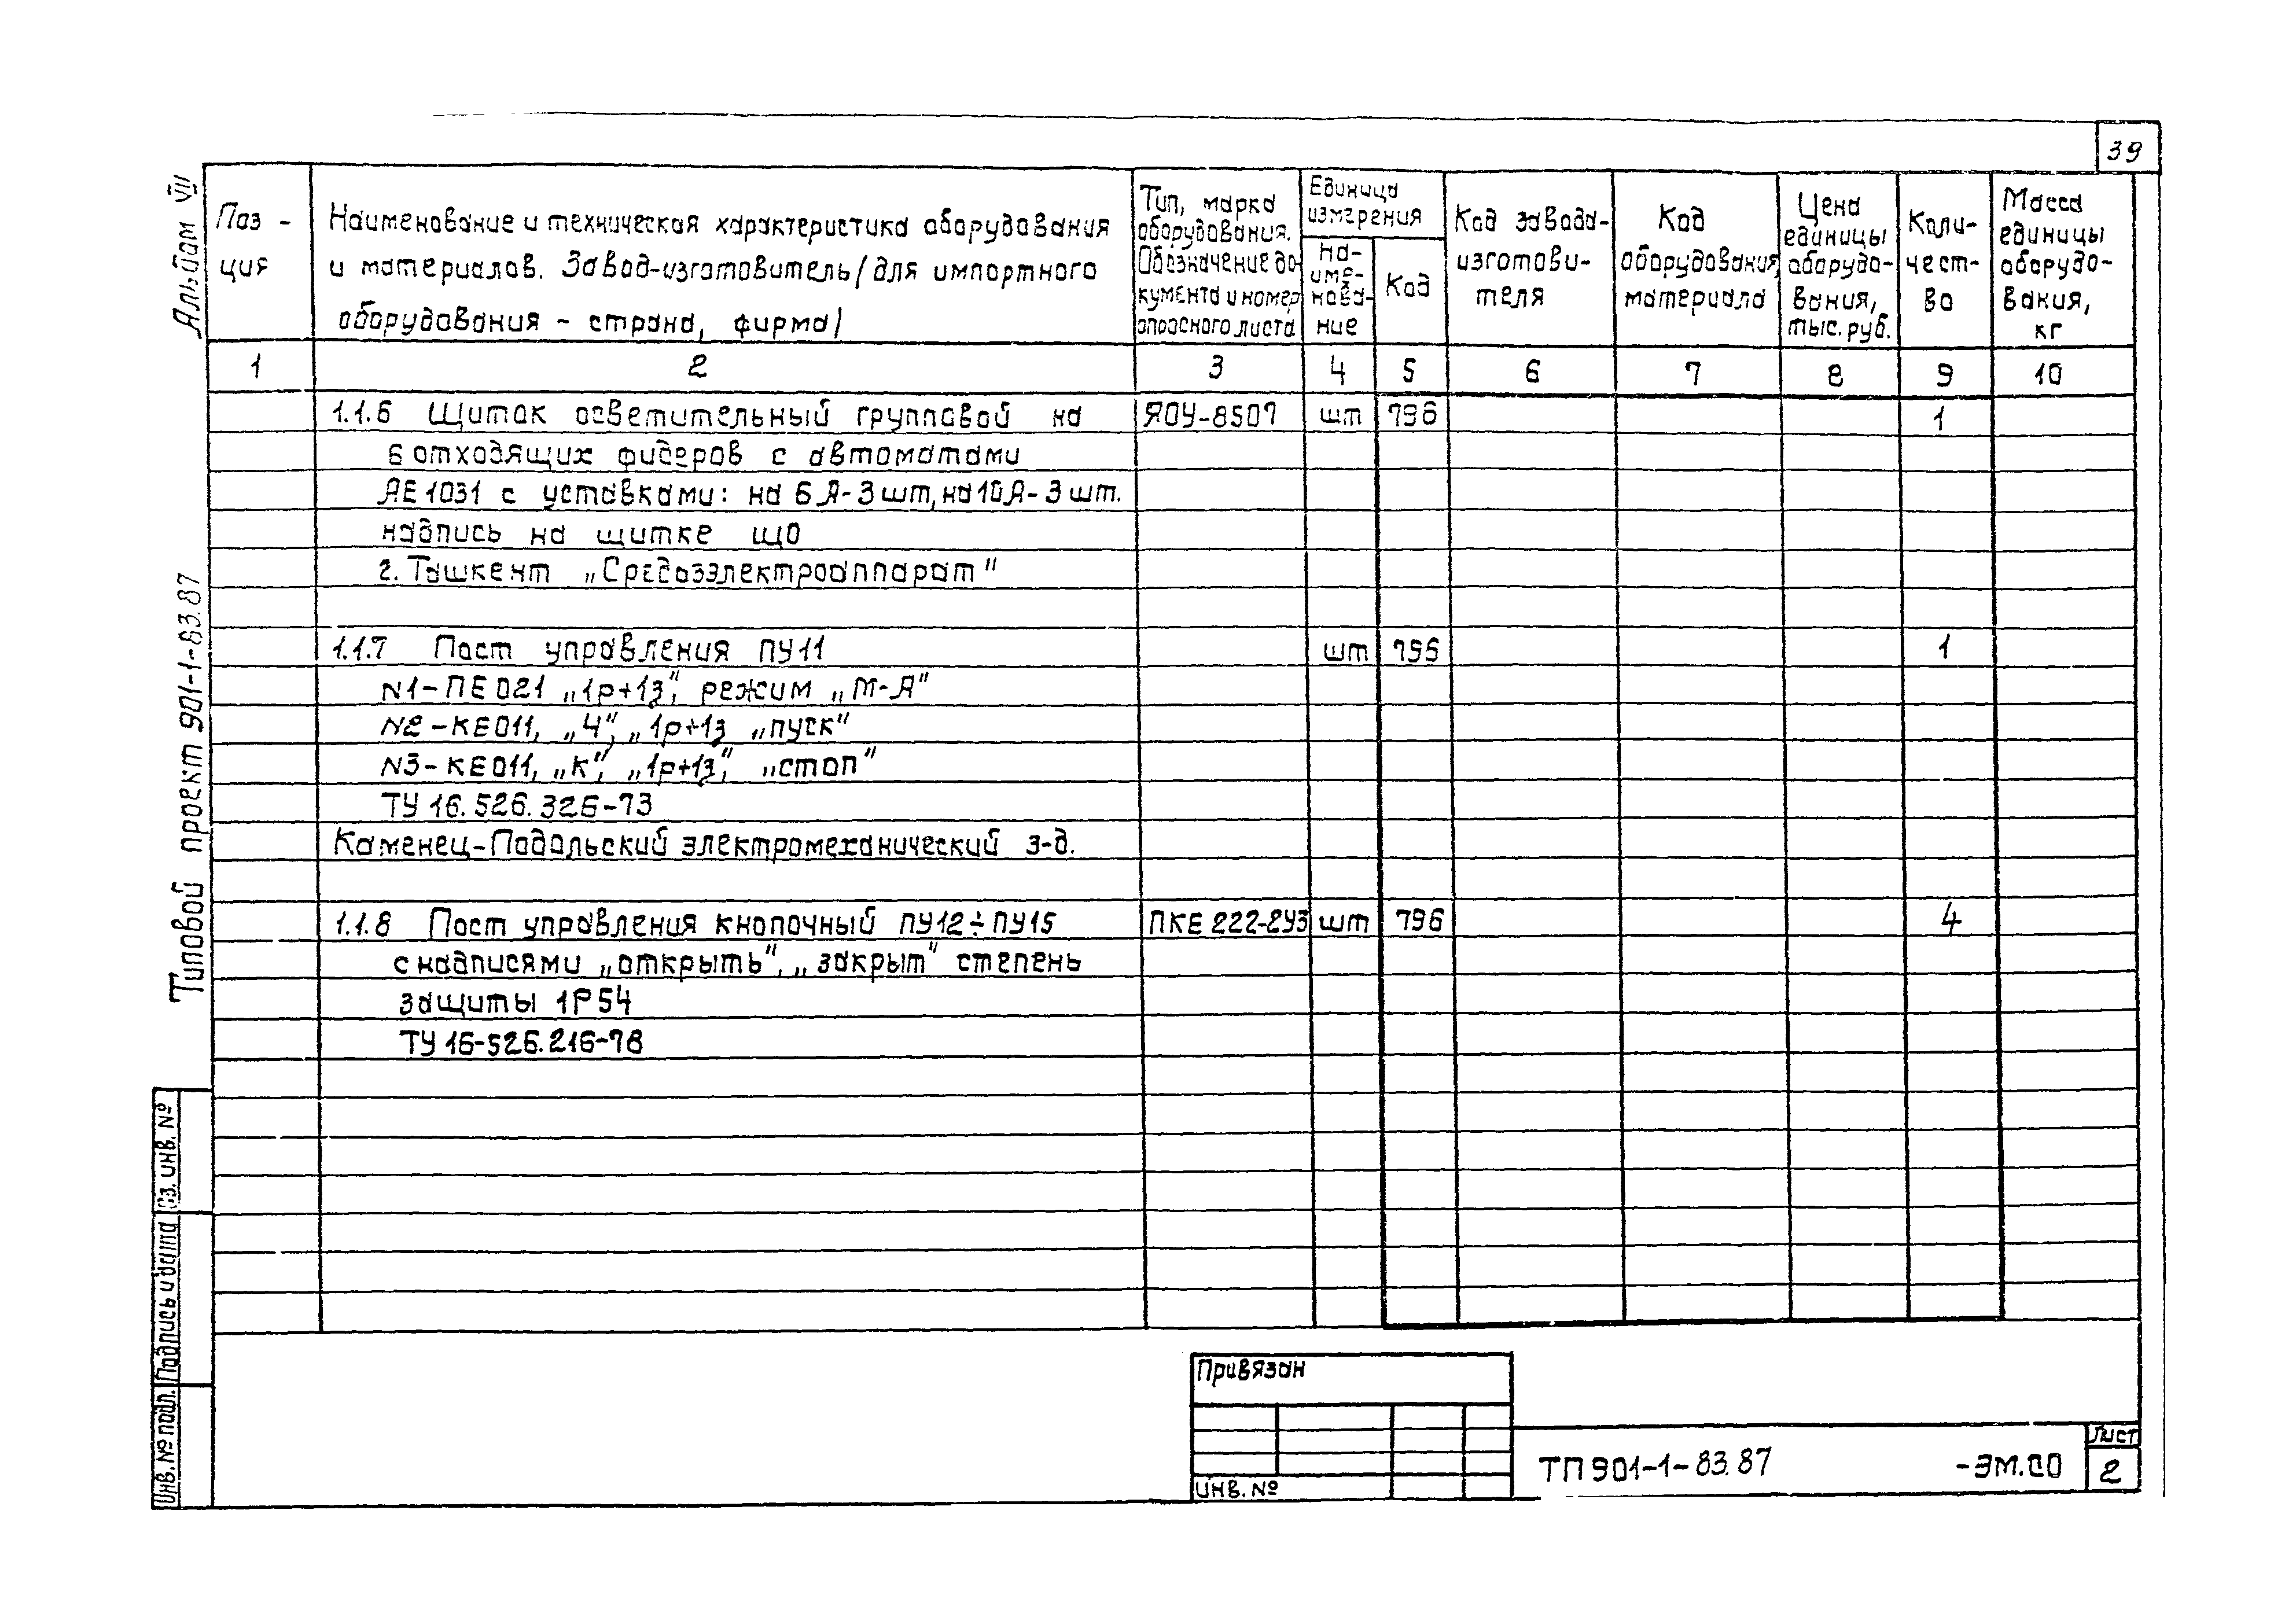 39
Альбом VII
Типовой проект 901-1-83.87
Поз - ция
Наименование и техническая характеристика оборудования
и материалов. Завод-изготовитель/для импортного
оборудования - страна, фирма/
Тип, марка
оборудования.
Обозначение до-
кумента и номер
опросного листа
Единица
измерения
На-
име-
нова-
ние
Код
Код завода-
изготови-
теля
Код
оборудования,
материала
Цена
единицы
оборудо-
вания,
тыс. руб.
Коли-
чест-
во
Масса
единицы
оборудо-
вания,
кг
1 2 3 4 5 6 7 8 9 10
1.1.6 Щиток осветительный групповой на ЯОУ-8507 шт 796 1
6 отходящих фидеров с автоматами
АЕ1031 с уставками: на 6А-3шт, на 10А-3шт.
надпись на щитке ЩО
г. Ташкент „Средазэлектроаппарат"
1.1.7 Пост управления ПУ11 шт 796 1
N1-ПЕ021 „1р+1з", режим „М-А"
N2-КЕ011, „Ч", „1р+1з „пуск"
N3-КЕ011, „К", „1р+1з", „стоп"
ТУ 16.526.326-73
Каменец-Подольский электромеханический з-д.
1.1.8 Пост управления кнопочный ПУ12÷ПУ15 ПКЕ 222-2У3 шт 796 4
с надписями „открыть", „закрыт" степень
защиты 1Р54
ТУ 16-526.216-78
Вз. инв. №
Подпись и дата
Инв. № подл.
Привязан
Инв. №
ТП 901-1-83.87 -ЭМ.СО
Лист
2